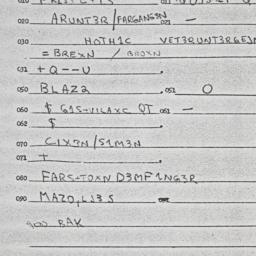 020 ARUNT3R/FARGANG3N 021 —
030 HOTH1C VET3RUNT3RGEJN
= BREXN / BROXN
031 + Q--U
050 BLAZ2 051 O
060 $ G1S+VILAXC QT 061 —
062 $
070 CIXTN/S1M3N
071 +
080 FARS+TOXN D3MF1NG3R
090 MAZO,LJ3S
900 RAK